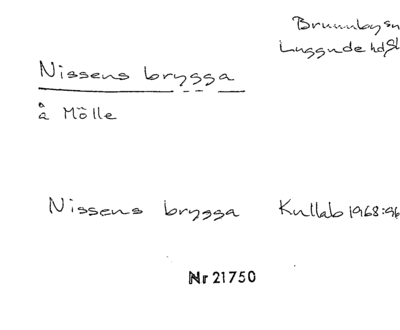 Brunnby sn
Luggude hd Sk
Nissens brygga
å Mölle
Nissens brygga Kullab 1968:96
Nr 21750